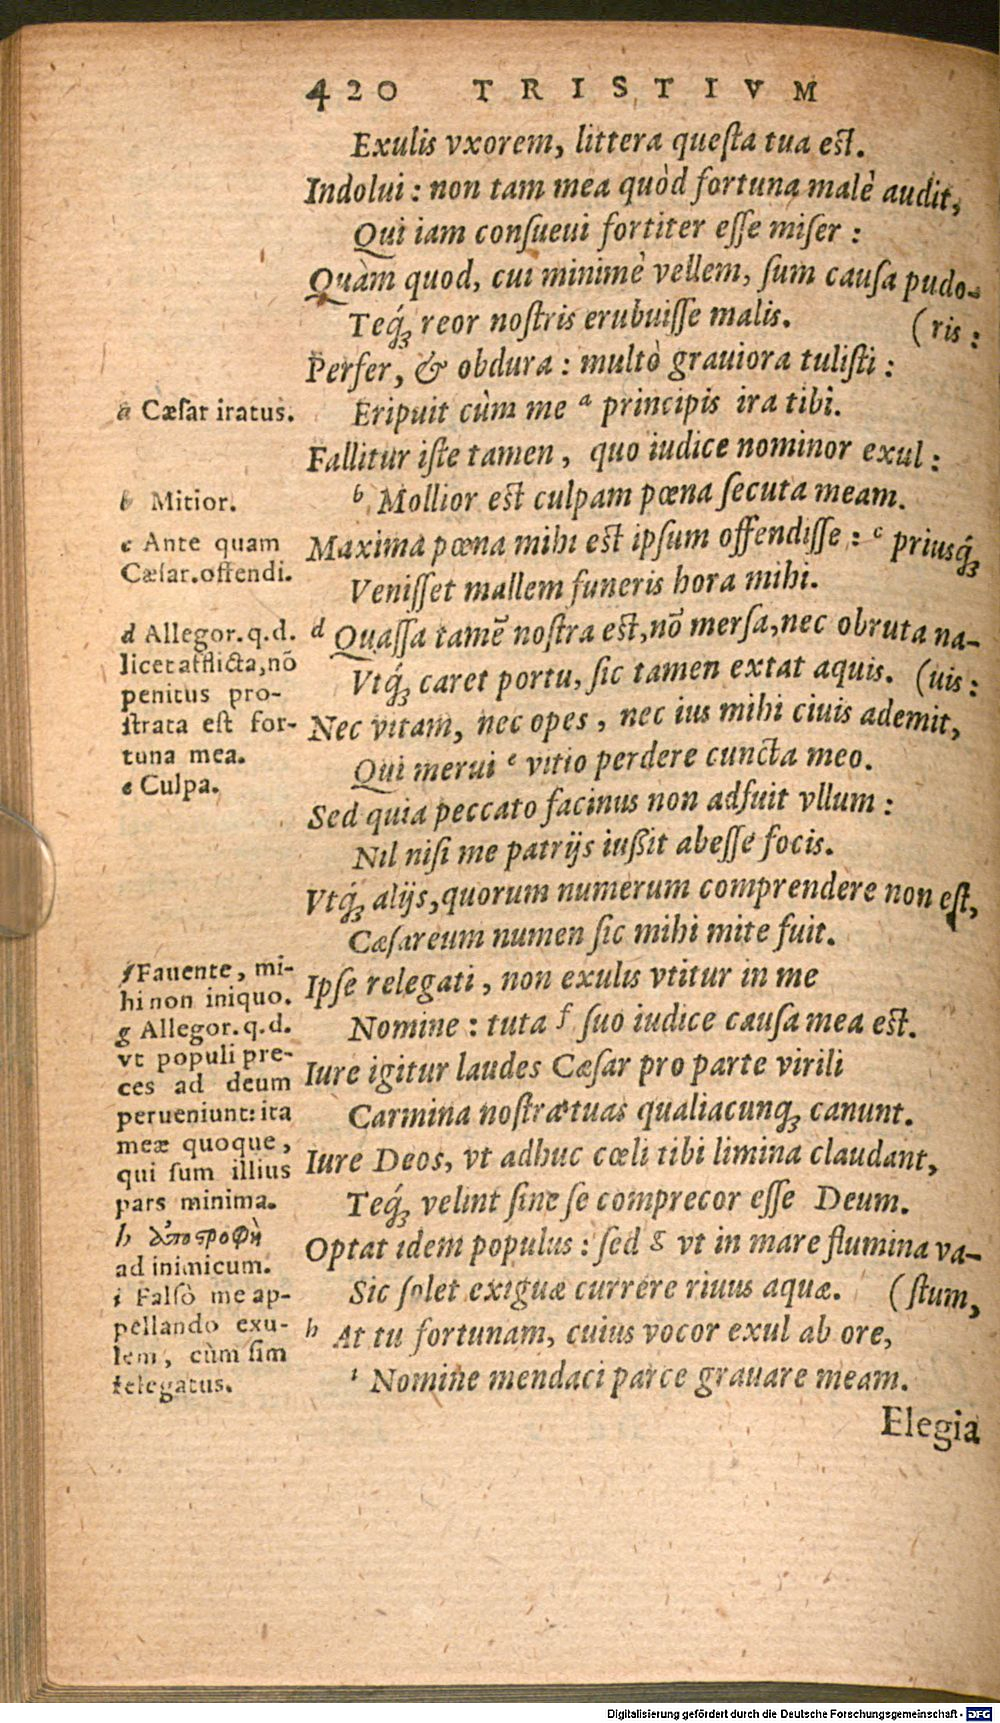 420 TRISTIVM
Exulis vxorem, littera questa tua est.
Indolui: non tam mea quòd fortuna malè audit,
Qui iam consueui fortiter esse miser:
Quàm quod, cui minimè vellem, sum causa pudo-
Teq́ꝫ reor nostris erubuisse malis. (ris:
Perfer, & obdura: multò grauiora tulisti:
a Cæsar iratus.
Eripuit cùm me a principis ira tibi.
Fallitur iste tamen, quo iudice nominor exul:
b Mitior.
b Mollior est culpam pœna secuta meam.
c Ante quam
Cæsar. offendi.
Maxima pœna mihi est ipsum offendisse: c priusq́ꝫ
Venisset mallem funeris hora mihi.
d Allegor. q. d.
licet afflicta, nō
penitus pro-
strata est for-
tuna mea.
d Quassa tamē nostra est, nō mersa, nec obruta na-
Vtq́ꝫ caret portu, sic tamen extat aquis. (uis:
Nec vitam, nec opes, nec ius mihi ciuis ademit,
e Culpa.
Qui merui e vitio perdere cuncta meo.
Sed quia peccato facinus non adfuit vllum:
Nil nisi me patrijs iußit abesse focis.
Vtq́ꝫ alijs, quorum numerum comprendere non est,
Cæsareum numen sic mihi mite fuit.
f Fauente, mi-
hi non iniquo.
Ipse relegati, non exulis vtitur in me
Nomine: tuta f suo iudice causa mea est.
g Allegor. q. d.
vt populi pre-
ces ad deum
perueniunt: ita
meæ quoque,
qui sum illius
pars minima.
Iure igitur laudes Cæsar pro parte virili
Carmina nostra tuas qualiacunqꝫ canunt.
Iure Deos, vt adhuc cœli tibi limina claudant,
Teq́ꝫ velint sine se comprecor esse Deum.
Optat idem populus: sed g vt in mare flumina va-
Sic solet exiguæ currere riuus aquæ. (stum,
h ἀποστροφὴ
ad inimicum.
i Falsò me ap-
pellando exu-
lem, cùm sim
relegatus.
h At tu fortunam, cuius vocor exul ab ore,
i Nomine mendaci parce grauare meam.
Elegia
Digitalisierung gefördert durch die Deutsche Forschungsgemeinschaft - DFG